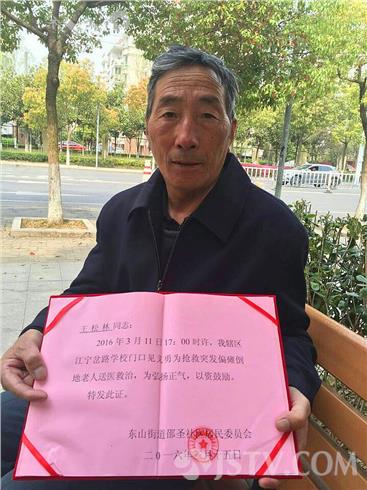 王松林 同志：
2016 年 3 月 11 日 17：00 时许，我辖区
江宁岔路学校门口见义勇为抢救突发偏瘫倒
地老人送医救治，为弘扬正气，以资鼓励。
特发此证。
东山街道邵圣社区居民委员会
二〇一六年 月 五日
JSTV.COM